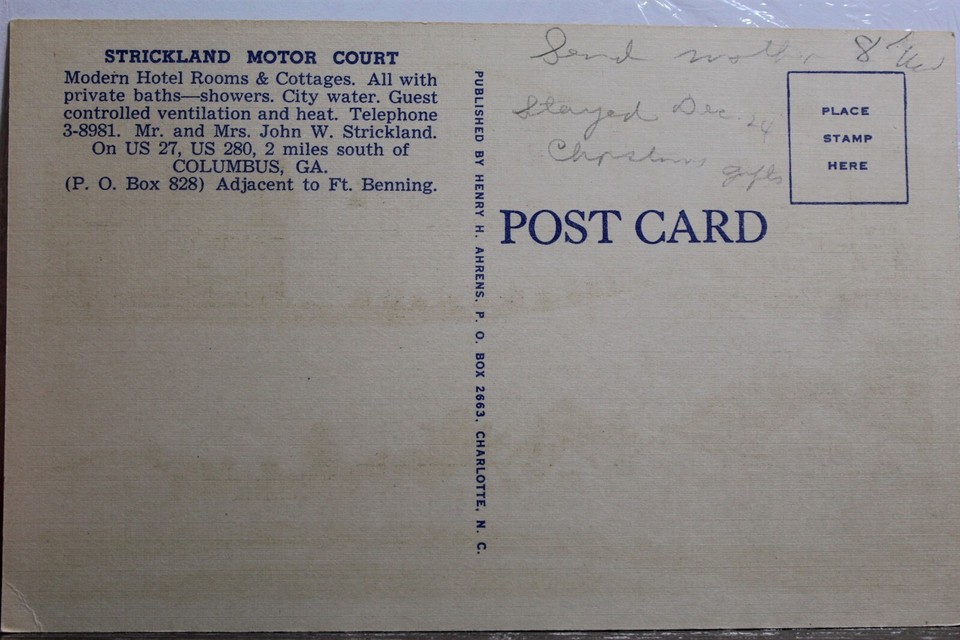 STRICKLAND MOTOR COURT
Modern Hotel Rooms & Cottages. All with
private baths—showers. City water. Guest
controlled ventilation and heat. Telephone
3-8981. Mr. and Mrs. John W. Strickland.
On US 27, US 280, 2 miles south of
COLUMBUS, GA.
(P. O. Box 828) Adjacent to Ft. Benning.
PUBLISHED BY HENRY H. AHRENS, P. O. BOX 2663, CHARLOTTE, N. C.
Send
Stayed Dec. 24
gifts
PLACE
STAMP
HERE
POST CARD